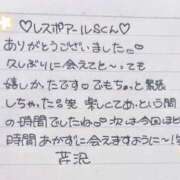 ♡レスポアールSくん♡
ありがとうございました。
久しぶりに会えてと〜っても
嬉しかったです♡でもちょっと緊張
しちゃったる笑 楽しくてあっという間
の時間でしたね♡次は今回ほど
時間あかずに会えますように〜!!
芹沢